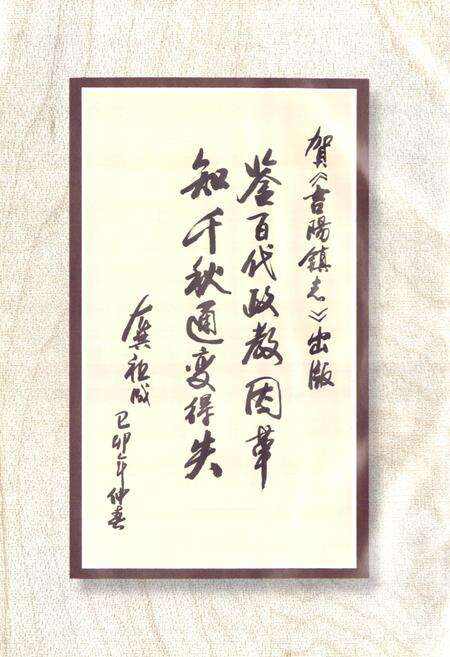 賀《吉陽鎮志》出版
鉴百代政教因革
知千秋通變得失
龔祖成
己卯年仲春